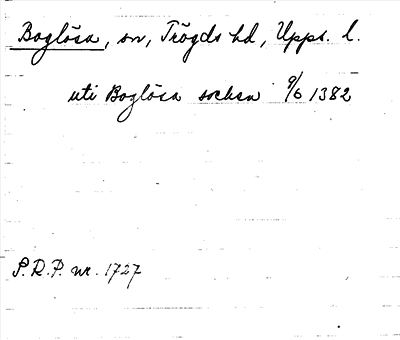 Boglösa, sn, Trögds hd, Upps. l.
uti Boglösa sochsn 9/6 1382
S.R.P. nr. 1727